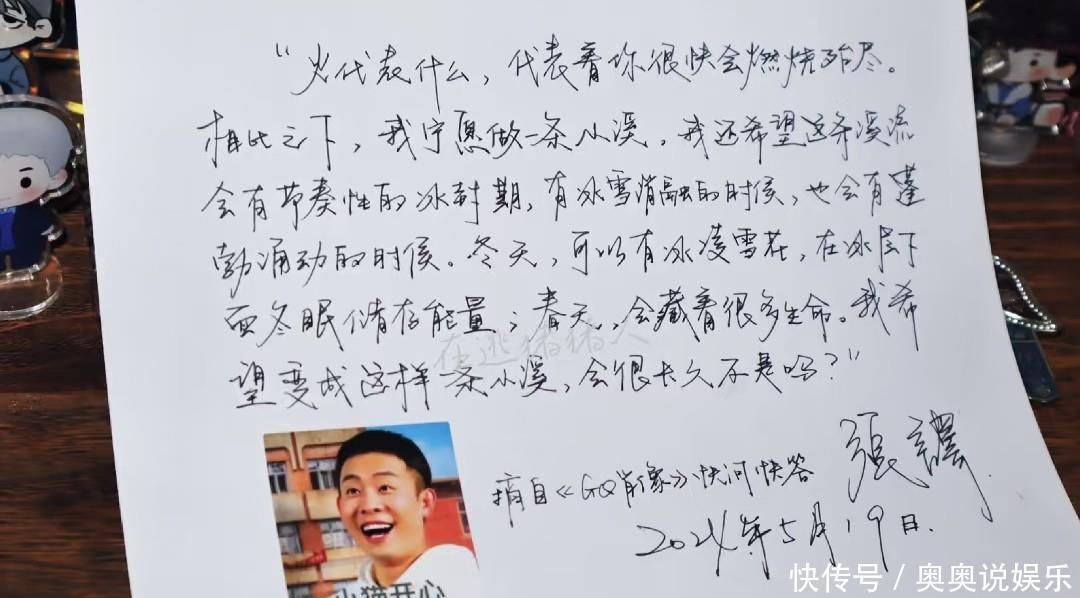 “火代表什么，代表着你很快会燃烧殆尽。
相比之下，我宁愿做一条小溪，我还希望这条溪流
会有节奏性的冰封期，有冰雪消融的时候，也会有蓬
勃涌动的时候。冬天，可以有冰凌雪花，在冰层下
面冬眠储存能量；春天，会藏着很多生命。我希
望变成这样一条小溪，会很长久不是吗？”
在逃猪猪人
摘自《GQ肖像》快问快答 張譯
2024年5月19日.
小猫开心
快传号 / 奥奥说娱乐